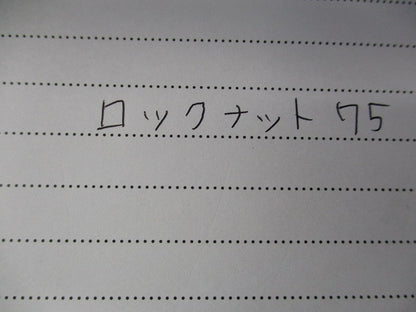 ロックナット 75